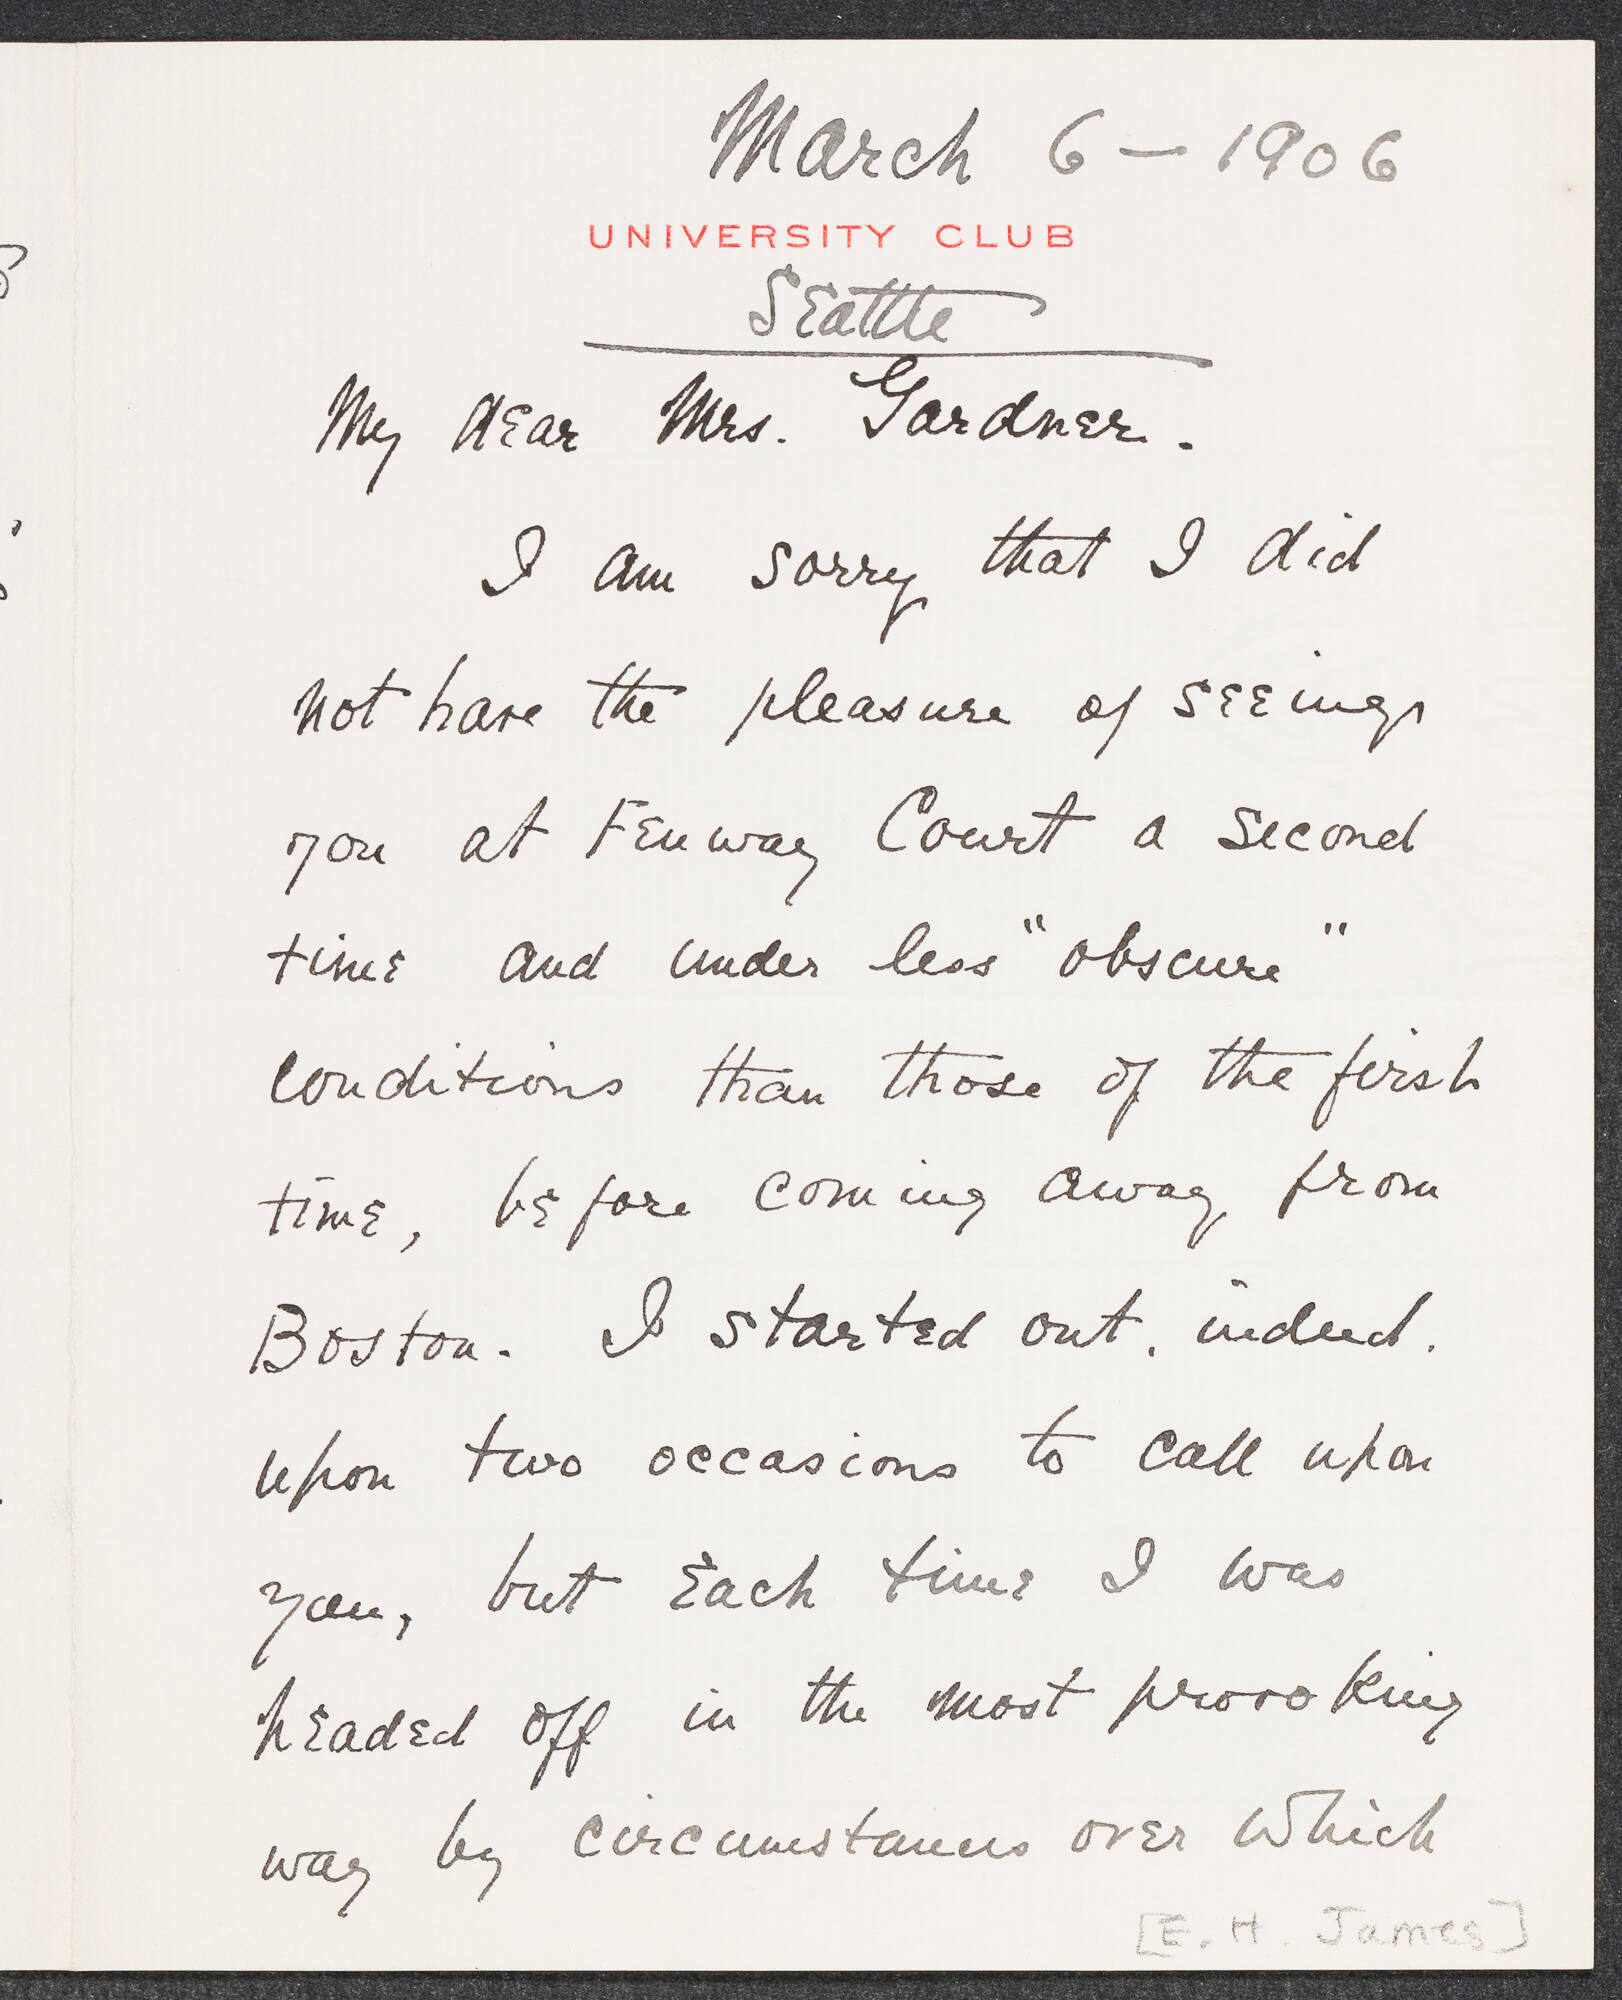 March 6 — 1906
UNIVERSITY CLUB
Seattle
My dear Mrs. Gardner.
I am sorry that I did
not have the pleasure of seeing
you at Fenway Court a second
time and under less "obscure"
conditions than those of the first
time, before coming away from
Boston. I started out, indeed,
upon two occasions to call upon
you, but each time I was
headed off in the most provoking
way by circumstances over which
[E. H. James]